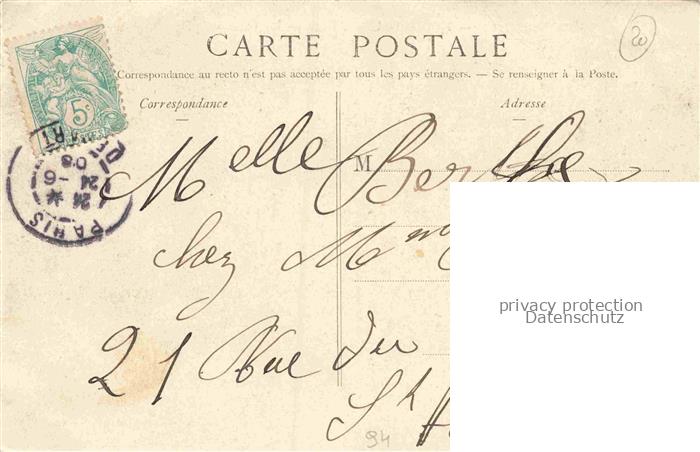 20
CARTE POSTALE
(Correspondance au recto n'est pas acceptée par tous les pays étrangers. — Se renseigner à la Poste.
Correspondance
Adresse
5c
PARIS
DEPART
24 -6
08
M
Melle Berthe
chez Mme
21 Rue du
St H
94
privacy protection
Datenschutz